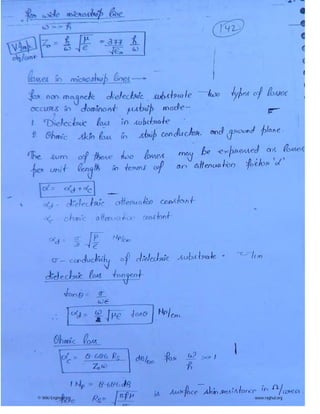 for wide microstrip line
142
ω >> h
Z₀ = h/ω √μ/ε = 377/√εr h/ω
losses in microstrip lines →
for non magnetic dielectric substrate - two types of losses
occurs in dominant μstrip mode -
1. Dielectric loss in substrate
2. Ohmic skin loss in strip conductor and ground plane.
The sum of these two losses may be expressed as losses
per unit length in terms of an attenuation factor 'α'
α = αd + αc
αd - dielectric attenuation constant
αc - ohmic attenuation constant
αd = σ/2 √μ/ε Np/cm
σ - conductivity of dielectric substrate
dielectric loss tangent
tanθ = σ/ωε
∴ αd = ω/2 √με tanθ Np/cm
Ohmic loss
αc = 8.686 Rs / Z₀ω dB/cm for ω/h >> 1
1 Np = 8.686 dB
Rs = √πfμ is surface skin resistance in Ω/
www.raghul.org